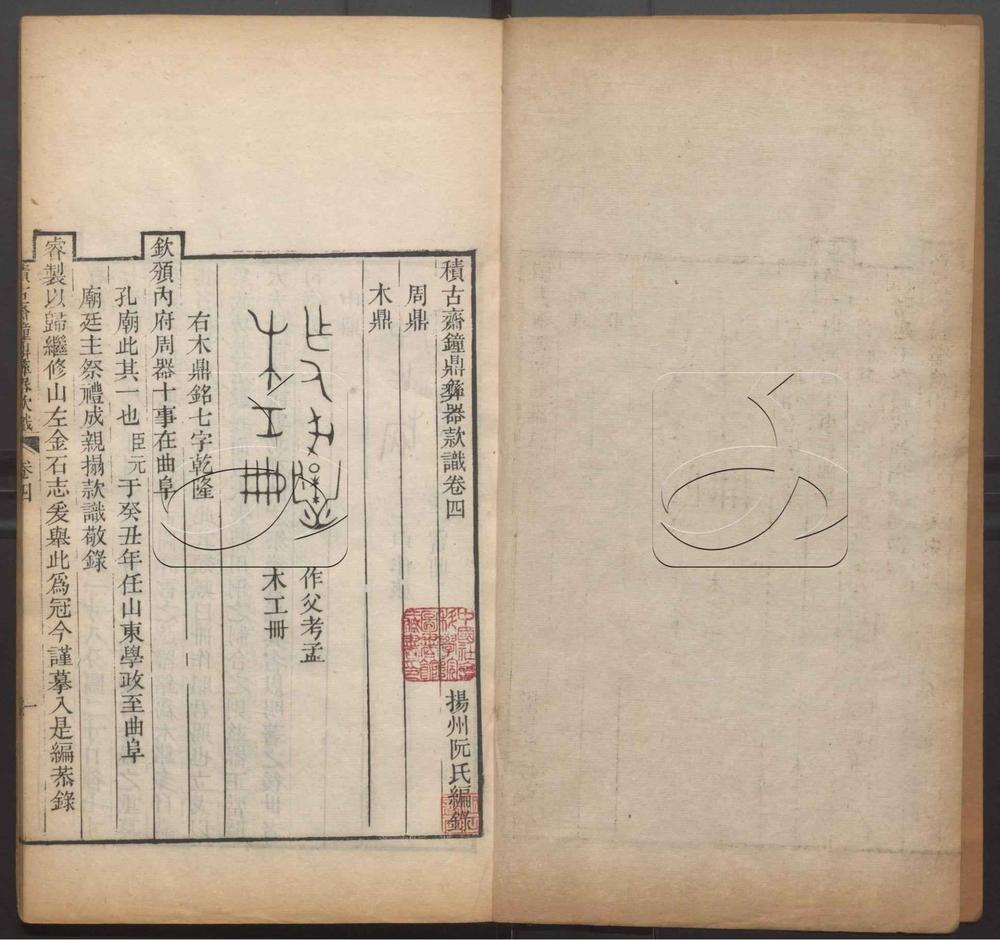 積古齋鐘鼎彝器款識卷四
揚州阮氏編錄
周鼎
木鼎
作父考孟
木工冊
右木鼎銘七字乾隆
欽頒內府周器十事在曲阜
孔廟此其一也臣元于癸丑年任山東學政至曲阜
廟廷主祭禮成親搨款識敬錄
睿製以歸繼修山左金石志爰舉此為冠今謹摹入是編恭錄
卷四
一